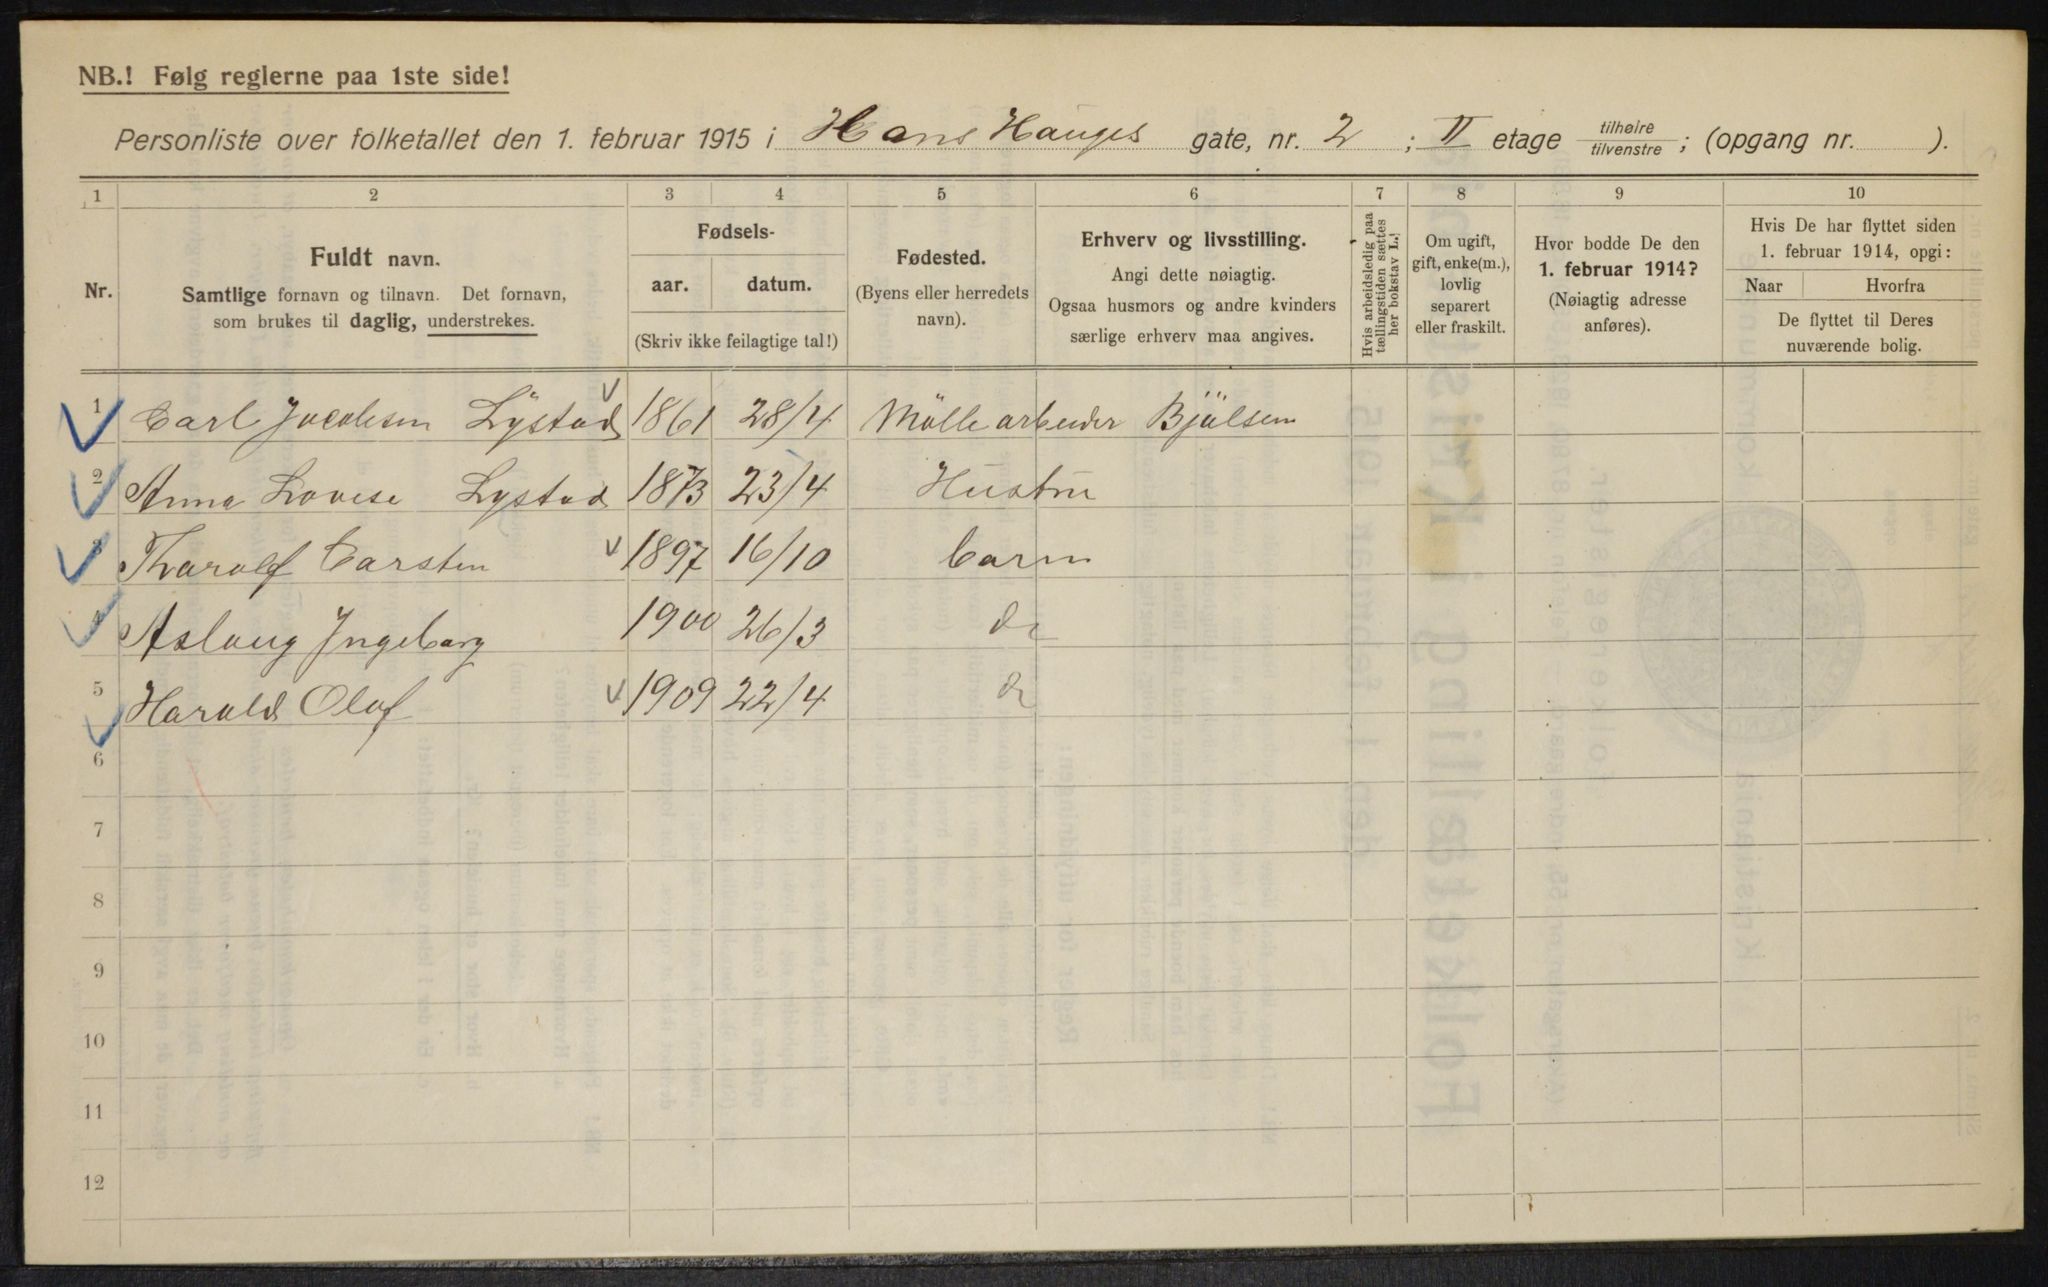 NB.! Følg reglerne paa 1ste side!
Personliste over folketallet den 1. februar 1915 i Hans Hauges gate, nr. 2 ; II etage tilhøire / tilvenstre ; (opgang nr. ).
1 2 3 4 5 6 7 8 9 10
Nr.
Fuldt navn.
Samtlige fornavn og tilnavn. Det fornavn,
som brukes til daglig, understrekes.
Fødsels-
aar. datum.
(Skriv ikke feilagtige tal!)
Fødested.
(Byens eller herredets
navn).
Erhverv og livsstilling.
Angi dette nøiagtig.
Ogsaa husmors og andre kvinders
særlige erhverv maa angives.
Hvis arbeidsledig paa
tællingstiden sættes
her bokstav L.
Om ugift,
gift, enke(m.),
lovlig
separert
eller fraskilt.
Hvor bodde De den
1. februar 1914?
(Nøiagtig adresse
anføres).
Hvis De har flyttet siden
1. februar 1914, opgi:
Naar Hvorfra
De flyttet til Deres
nuværende bolig.
1 Carl Jacobsen Lÿstad 1861 28/4 Mölle arbeider Bjölsen
2 Anna Lovise Lystad 1873 23/4 Hustru
3 Thoralf Carsten 1897 16/10 barn
4 Aslaug Ingeborg 1900 26/3 do
5 Harald Olaf 1909 22/4 do
6
7
8
9
10
11
12